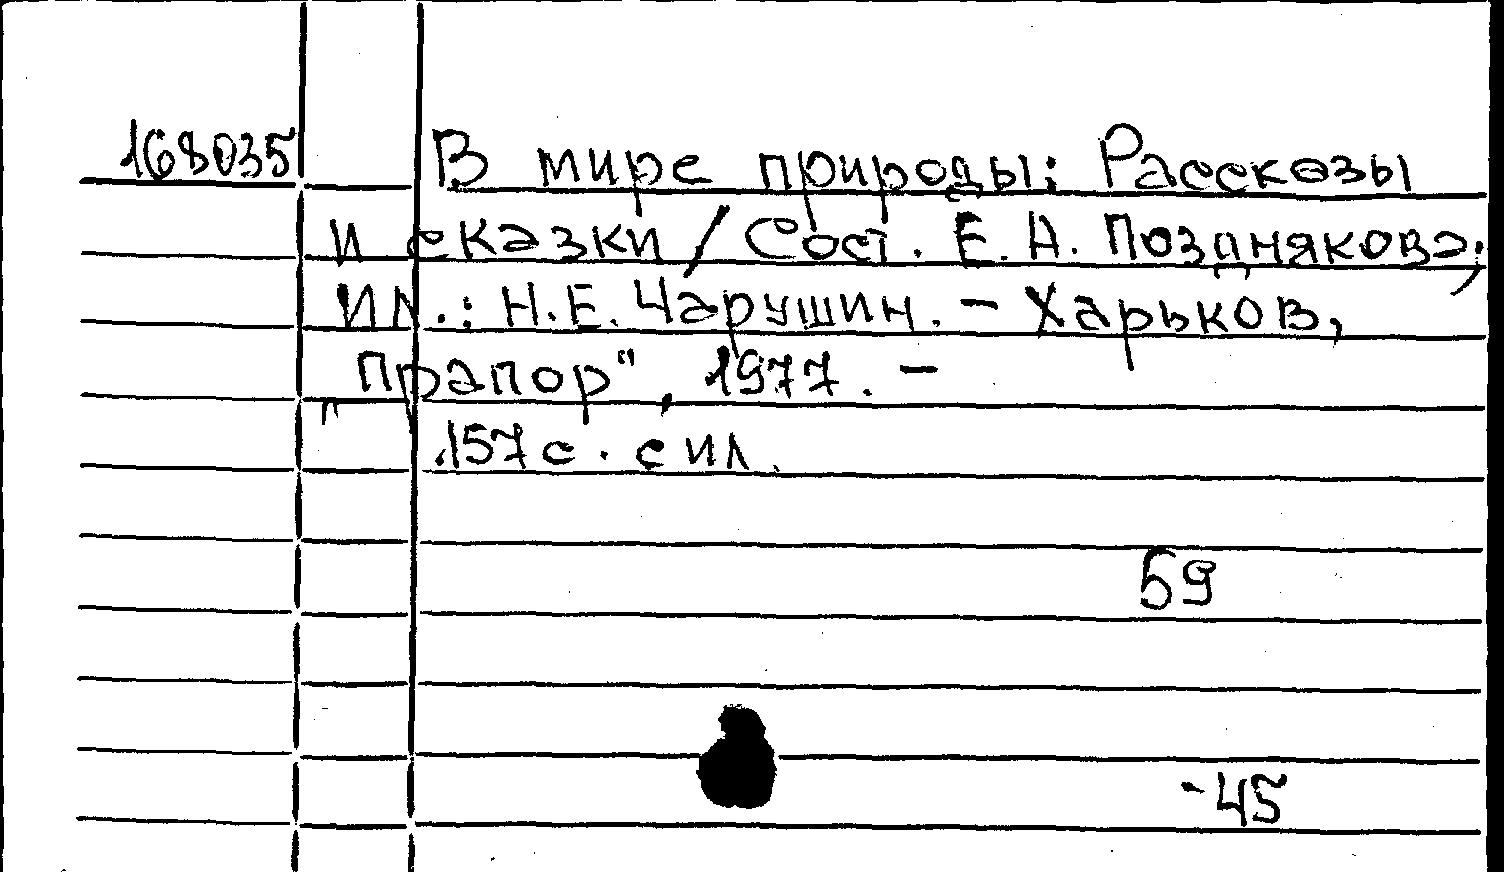 168035 В мире природы: Рассказы
и сказки / Сост. Е. А. Позднякова;
Ил.: Н.Е. Чарушин. – Харьков,
„Прапор", 1977. –
157 с. с ил.
59
-45